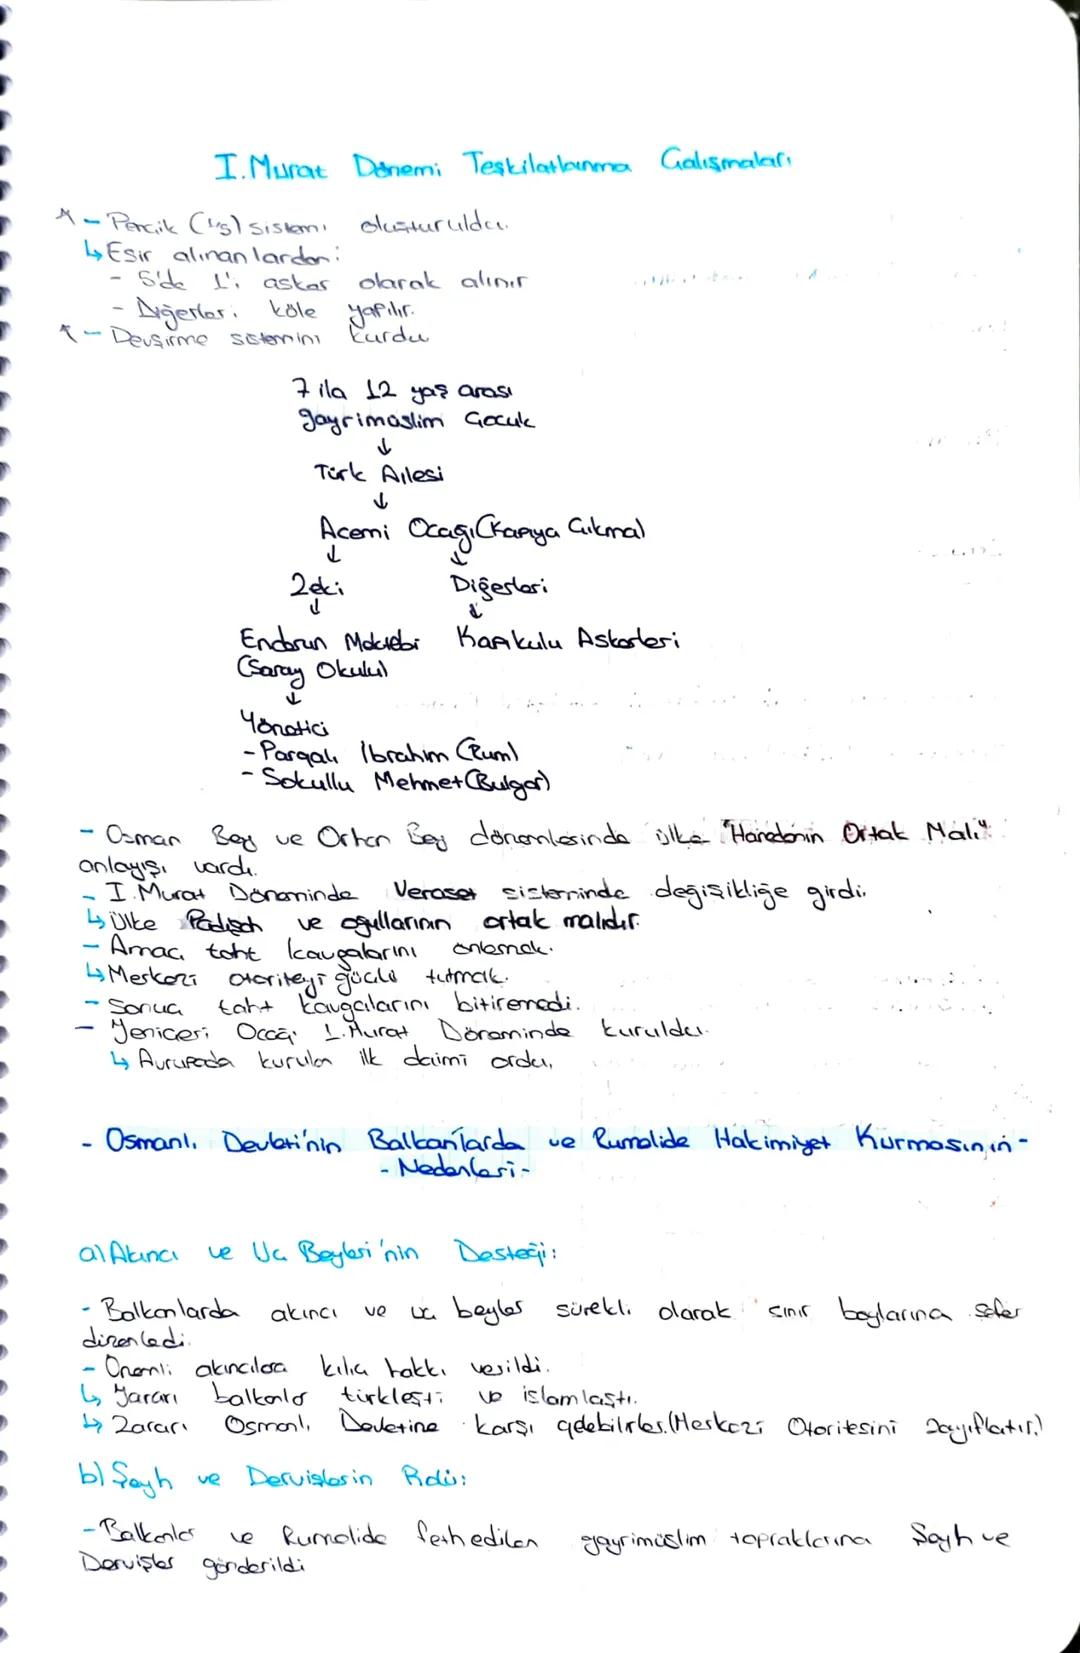 I.Murat Dönemi Teşkilatlanma Çalışmaları
- Pençik (1/5) sistemi oluşturuldu.
↳ Esir alınanlardan:
- 5'de 1'i asker olarak alınır
- Diğerleri köle yapılır.
- Devşirme sistemini kurdu
7 ila 12 yaş arası
gayrimüslim Çocuk
↓
Türk Ailesi
↓
Acemi Ocağı (Kapıya Çıkma)
↓ ↓
Zeki Diğerleri
↓ ↓
Enderun Mektebi Kapıkulu Askerleri
(Saray Okulu)
↓
Yönetici
- Pargalı İbrahim (Rum)
- Sokullu Mehmet (Bulgar)
- Osman Bey ve Orhan Bey dönemlerinde ülke "Hanedanın Ortak Malı"
anlayışı vardı.
- I.Murat Döneminde Veraset sisteminde değişikliğe girdi.
↳ Ülke Padişah ve oğullarının ortak malıdır.
- Amaç taht kavgalarını önlemek.
↳ Merkezi otoriteyi güçlü tutmak.
- Sonuç taht kavgalarını bitiremedi.
- Yeniçeri Ocağı 1.Murat Döneminde kuruldu.
↳ Avrupada kurulan ilk daimi ordu,
- Osmanlı Devleti'nin Balkanlarda ve Rumelide Hakimiyet Kurmasının -
- Nedenleri -
a) Akıncı ve Uç Beyleri'nin Desteği:
- Balkanlarda akıncı ve uç beyler sürekli olarak sınır boylarına sefer
düzenledi.
- Önemli akıncılara kılıç hakkı verildi.
↳ Yararı balkanlar türkleşti ve islamlaştı.
↳ Zararı Osmanlı Devletine karşı gelebilirler. (Merkezi Otoritesini Zayıflatır.)
b) Şeyh ve Dervişlerin Rolü:
- Balkanlar ve Rumelide fethedilen gayrimüslim topraklarına Şeyh ve
Dervişler gönderildi